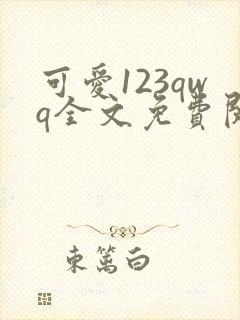 可愛123qw
q全文免費閱
東篱白